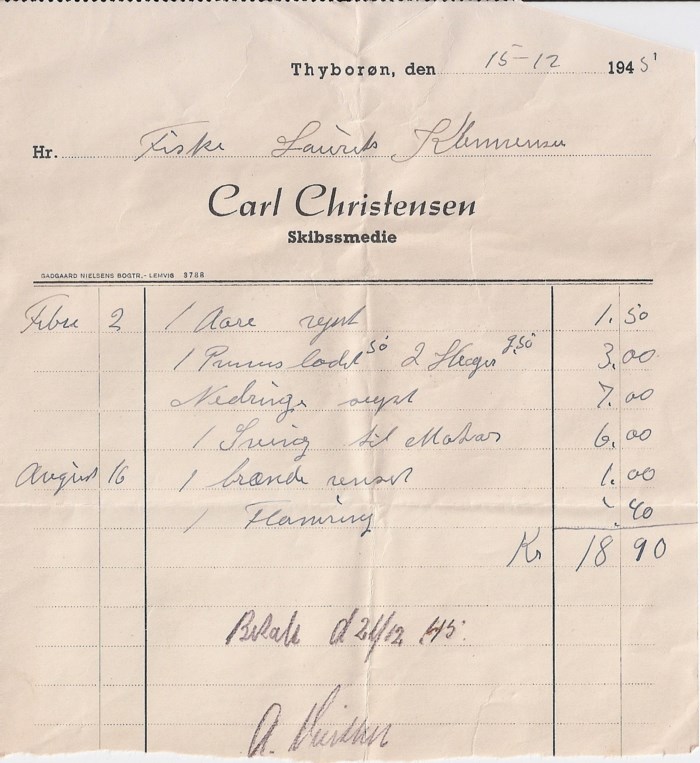 Thyborøn, den 15-12 1945
Hr. Fiske Laurits Klemmensen
Carl Christensen
Skibssmedie
GADGAARD NIELSENS BOGTR. - LEMVIG 3788
Febr 2 1 Aare 1.50
1 Primus lodet 50 2 3.00
7.00
1 Sving til Motor 6.00
August 16 1 brænder renset 1.00
1 .40
Kr 18 90
Betalt d 21/12 45.
A.